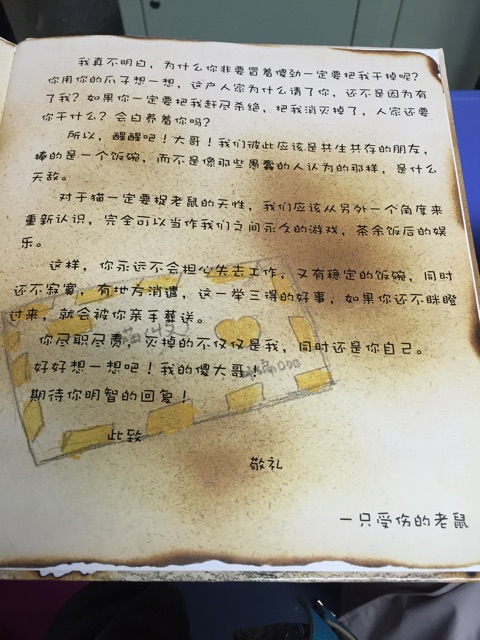 我真不明白，为什么你非要冒着傻劲一定要把我干掉呢？
你用你的爪子想一想，这户人家为什么请了你，还不是因为有
了我？如果你一定要把我赶尽杀绝，把我消灭掉了，人家还要
你干什么？会白养着你吗？
所以，醒醒吧！大哥！我们彼此应该是共生共存的朋友，
捧的是一个饭碗，而不是像那些愚蠢的人认为的那样，是什么
天敌。
对于猫一定要捉老鼠的天性，我们应该从另外一个角度来
重新认识，完全可以当作我们之间永久的游戏，茶余饭后的娱
乐。
这样，你永远不会担心失去工作，又有稳定的饭碗，同时
还不寂寞，有地方消遣，这一举三得的好事，如果你还不眯瞪
过来，就会被你亲手葬送。
你尽职尽责，灭掉的不仅仅是我，同时还是你自己。
好好想一想吧！我的傻大哥！
期待你明智的回复！
此致
敬礼
一只受伤的老鼠
猫(收)